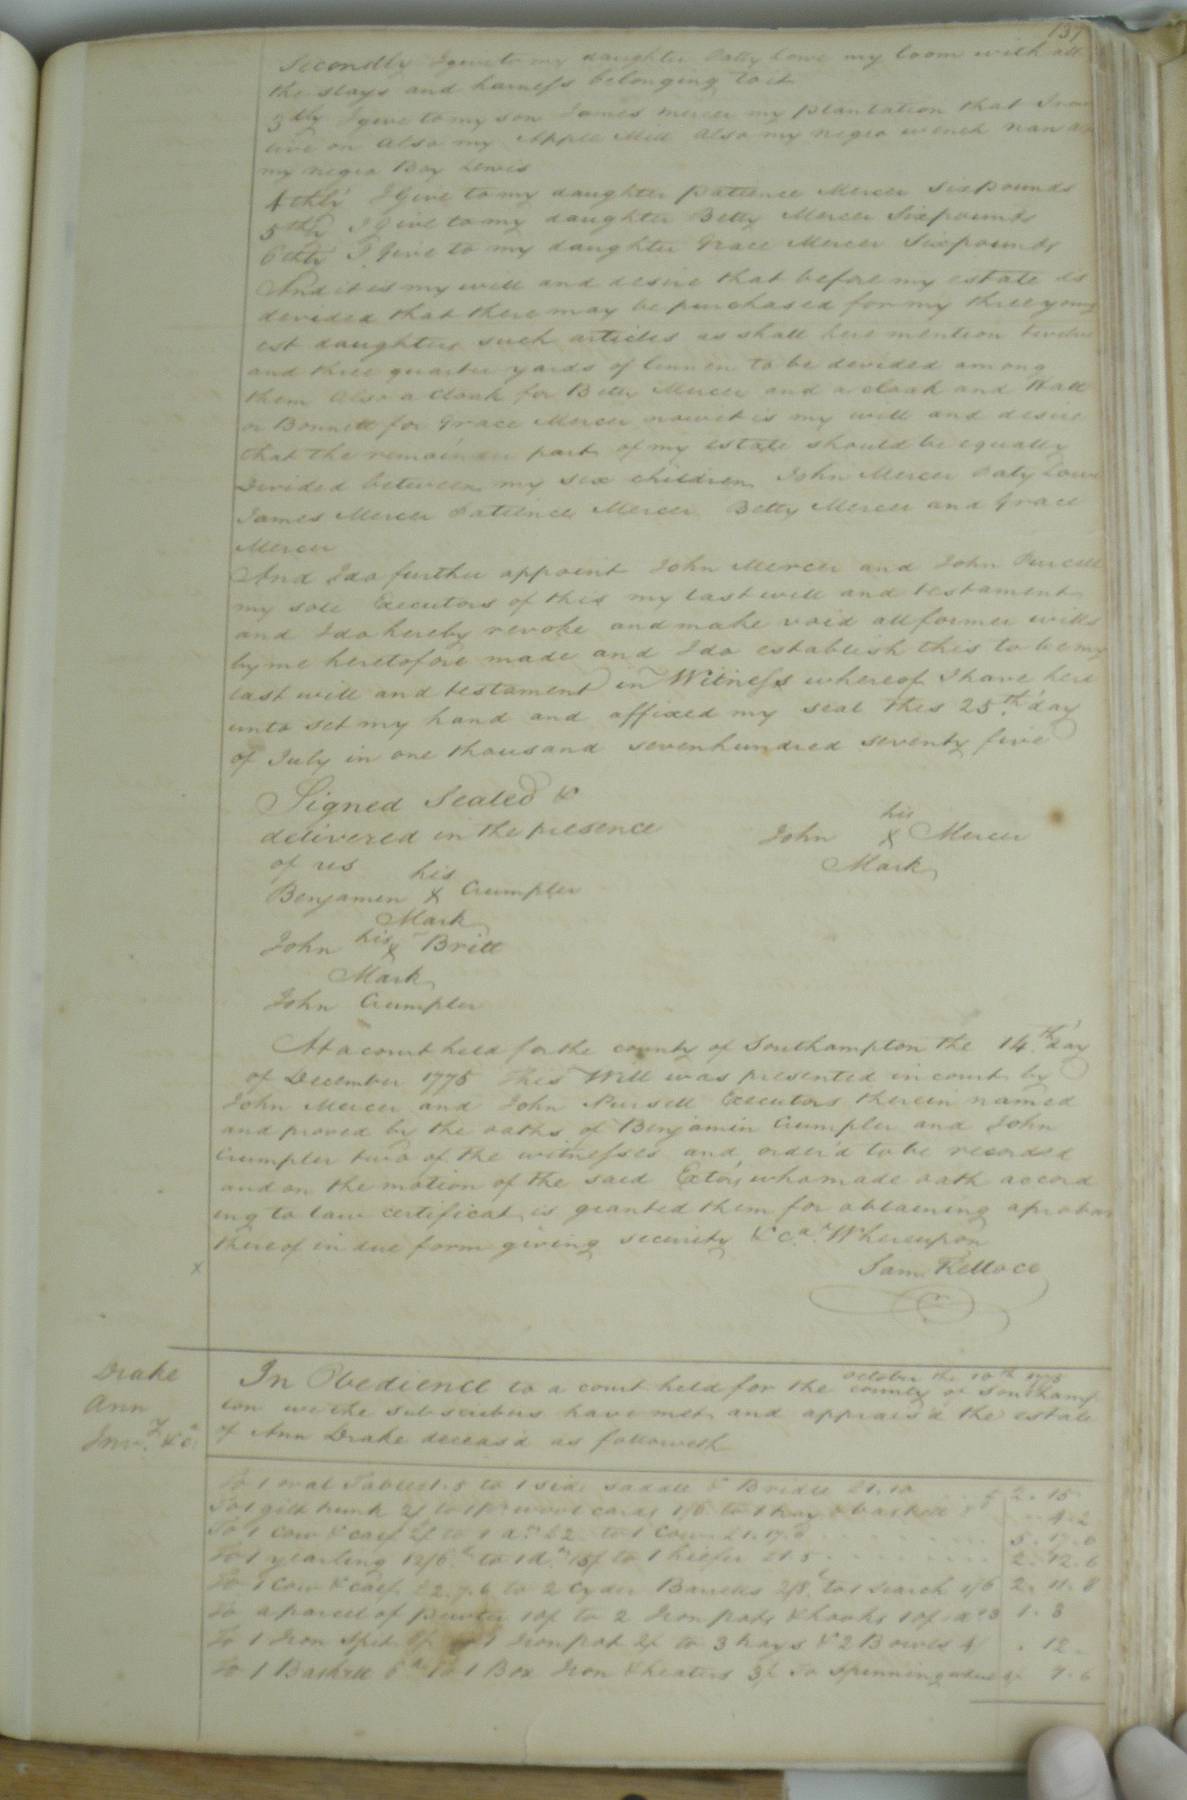 137
Secondly I give to my daughter Patty Lowe my loom with all
the slays and harness belonging to it
3dly I give to my son James Mercer my plantation that I now
live on also my Apple Mill also my negro wench nan
my negro Boy Lewis
4thly I Give to my daughter patience Mercer Six pounds
5thly I Give to my daughter Betty Mercer Six pounds
6thly I Give to my daughter Grace Mercer Six pounds
And it is my will and desire that before my estate is
devided that there may be purchased for my three young
est daughters such articles as shall here mention
and three quarter yards of linnen to be devided among
them also a Cloak for Betty Mercer and a cloak and Hatt
or Bonnett for Grace Mercer now it is my will and desire
that the remainder part of my estate should be equally
Devided between my six children John Mercer Paty Lowe
James Mercer Patience Mercer Betty Mercer and Grace
Mercer
And I do further appoint John Mercer and John Pursell
my sole Executors of this my last will and testament
and I do hereby revoke and make void all former wills
by me heretofore made and I do establish this to be my
last will and testament in Witness whereof I have here
unto set my hand and affixed my seal this 25th day
of July in one thousand seven hundred seventy five
Signed Sealed &
delivered in the presence
of us
his
John X Mercer
Mark
his
Benjamin X Crumpler
Mark
John his X Britt
Mark
John Crumpler
At a court held for the county of Southampton the 14th day
of December 1775 This Will was presented in court by
John Mercer and John Pursell Executors therein named
and proved by the oaths of Benjamin Crumpler and John
Crumpler two of the witnesses and order'd to be recorded
and on the motion of the said Exto'rs who made oath accord
ing to law certificate is granted them for obtaining a probat
thereof in due form giving security &ca. Whereupon
x
Sam. Kelloce
Drake
Ann
Inv.y &c
october the 10th 1775
In Obedience to a court held for the county of Southamp
ton we the subscribers have met and apprais'd the estate
of Ann Drake deceas'd as followeth
To 1 oval Table 1.5 to 1 side saddle & Bridle £1.10 2.15
To 1 gilt trunk 2/ to 1 pr wool cards 1/6 to 1 tray & baskett 4.2
To 1 Cow & calf to 1 do £2 to 1 Cow £1.17.6 5.17.6
To 1 yearling 12/6 to 1 do 15/ to 1 heifer £1.5 2.12.6
To 1 Cow & calf £2.7.6 to 2 Cyder Barrells 2/8 to 1 search 1/6 2.11.8
To a parcel of pewter 10/ to 2 Iron pots & hooks 1.3
To 1 Iron Spit to 1 Iron pot 2/ to 3 trays & 2 Bowls 4/ 12
To 1 Baskett 6d to 1 Box Iron & heaters 3/ To Spinning wheel 7.6